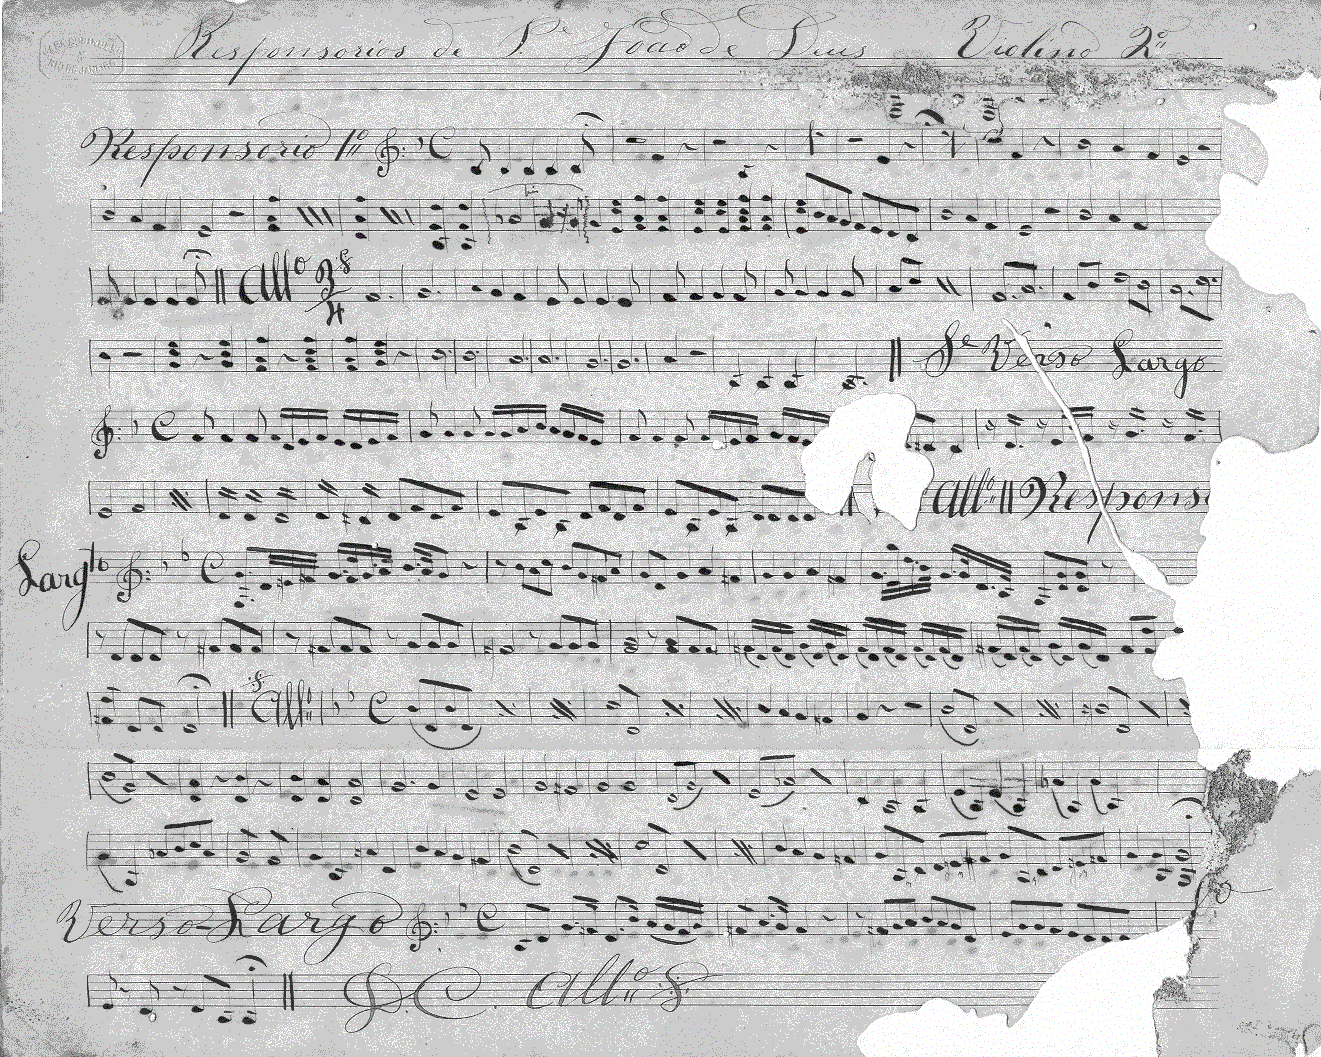 Responsorios de Pe João de Deus Violino 2º
Responsorio 1º
Allo 3/4
Se Verso Largo
Allo Respons
Largto
Allo
Verso Largo
D.C. Allo